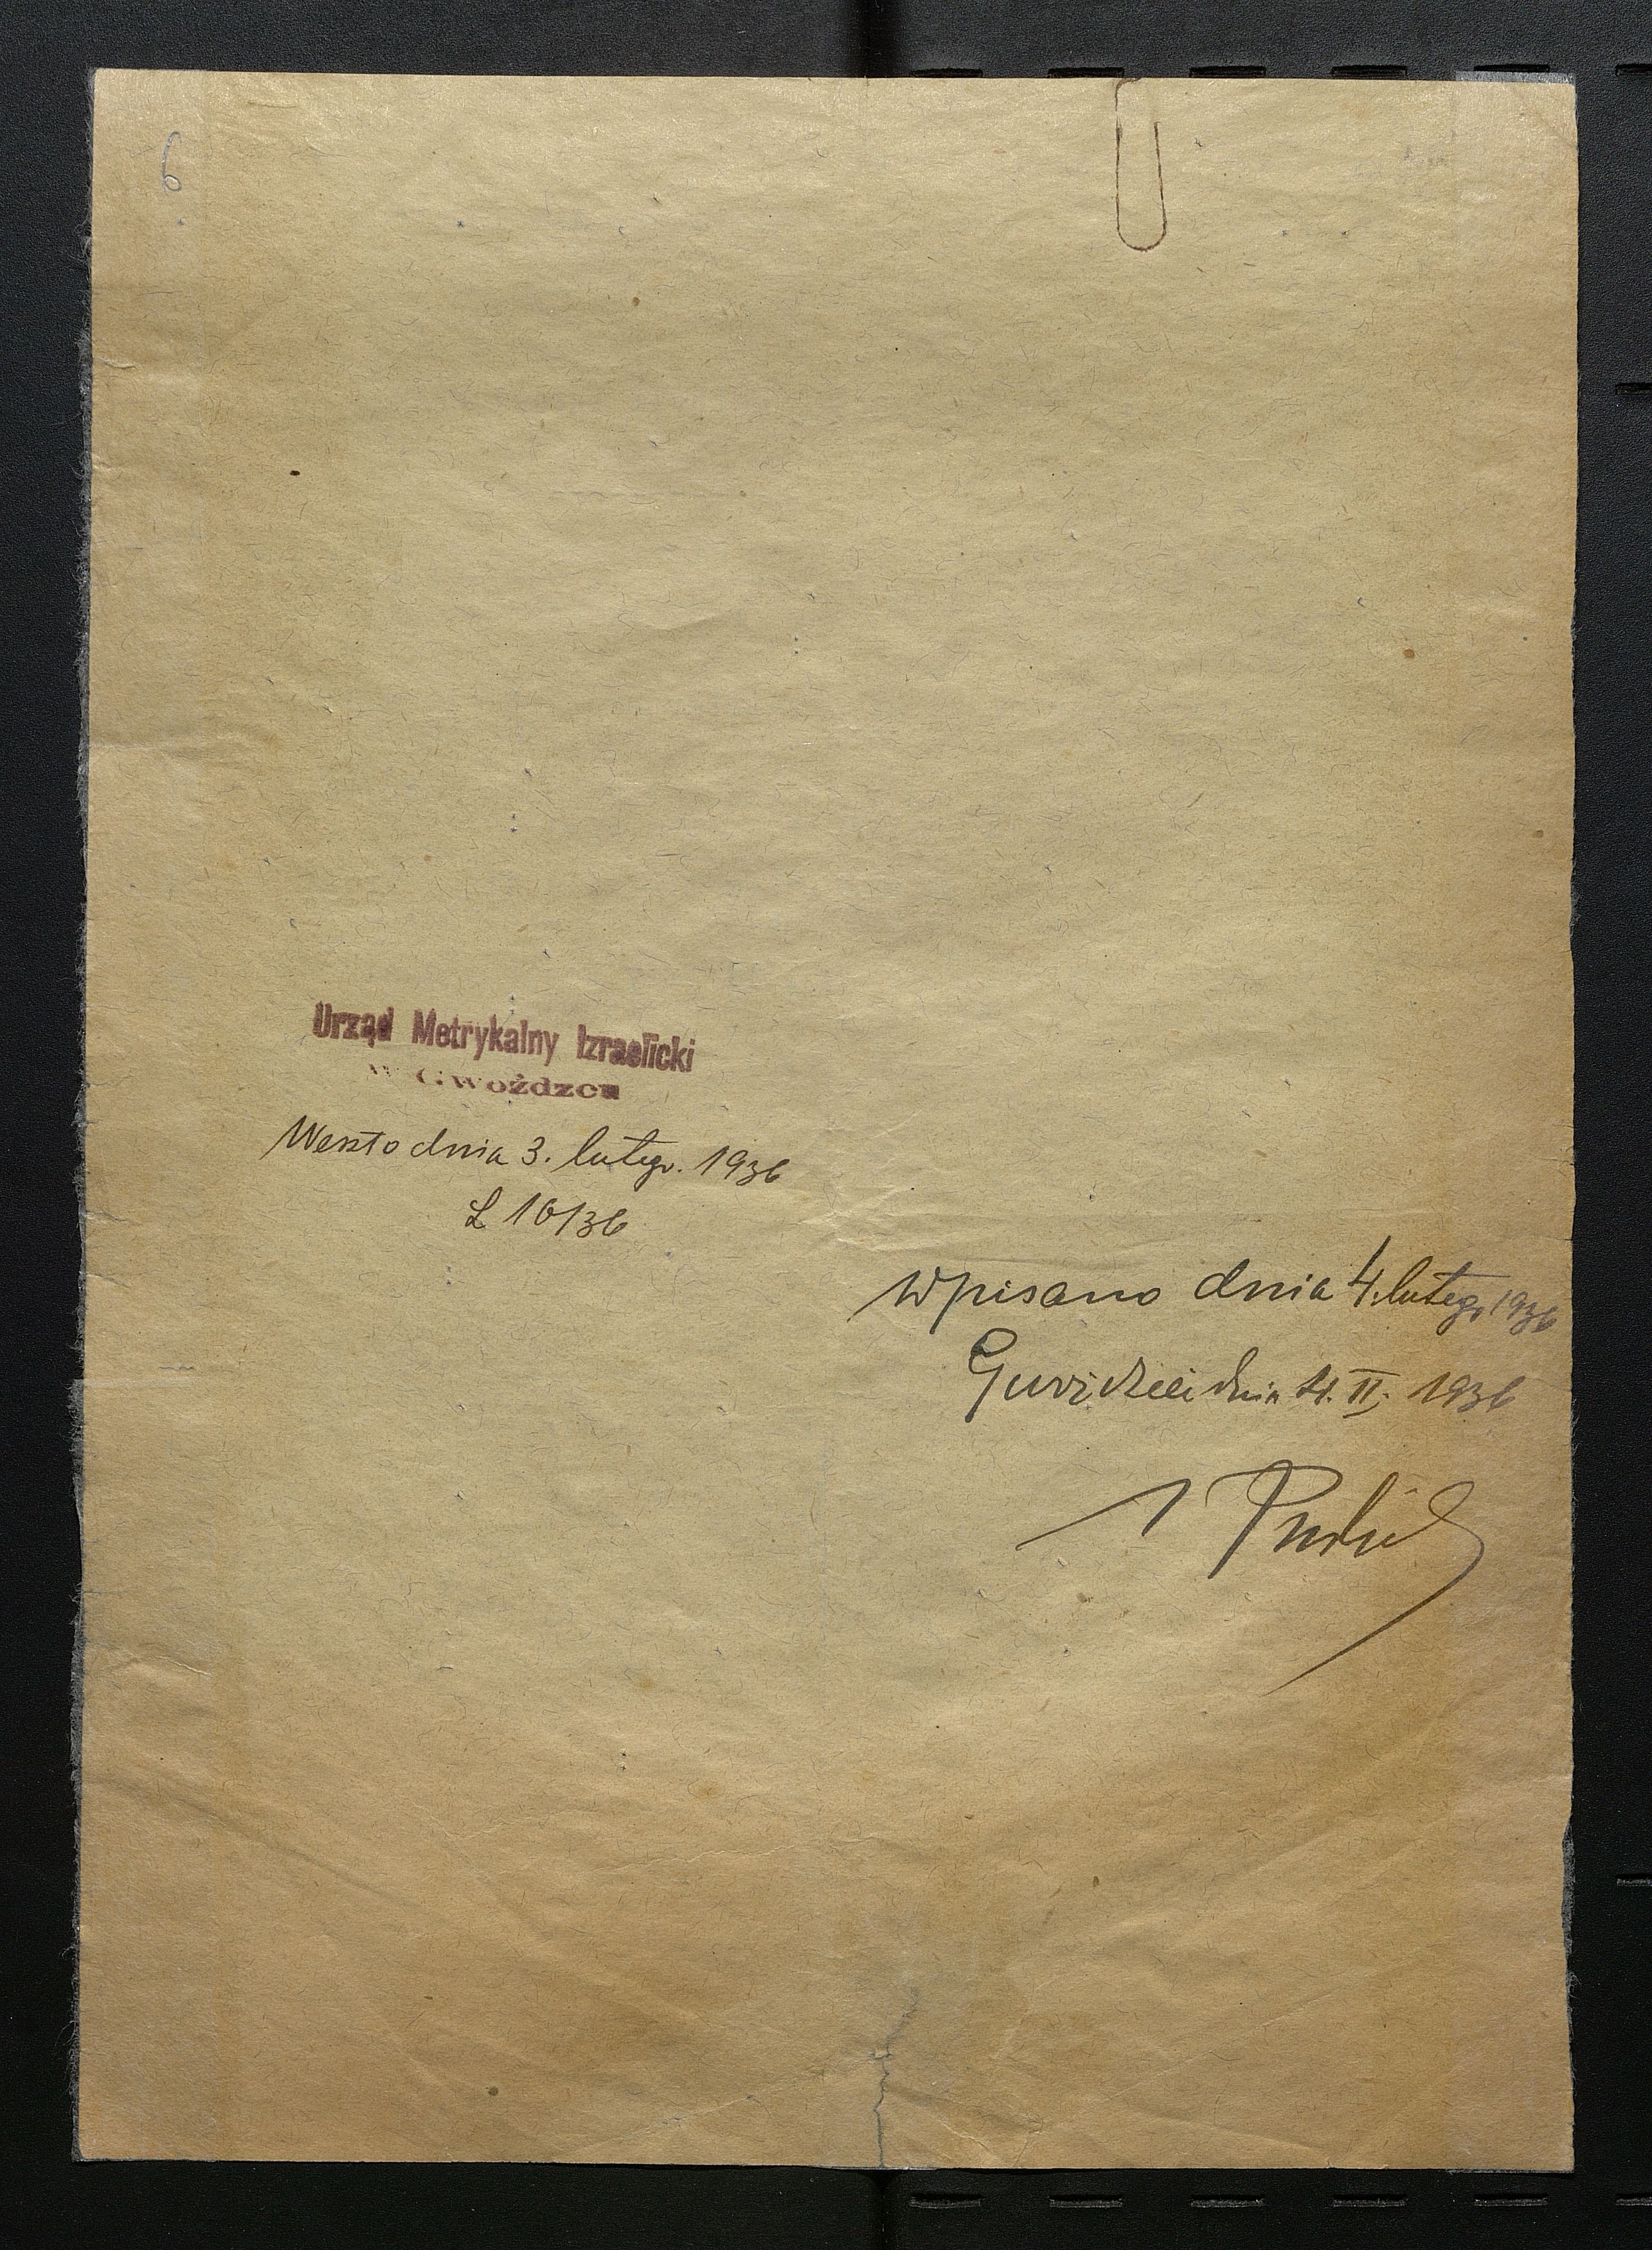 6
Urząd Metrykalny Izraelicki
w Gwoźdzcu
Weszło dnia 3. lutego. 1936
L 10/36
Wpisano dnia 4. lutego 1936
dnia 4. II. 1936